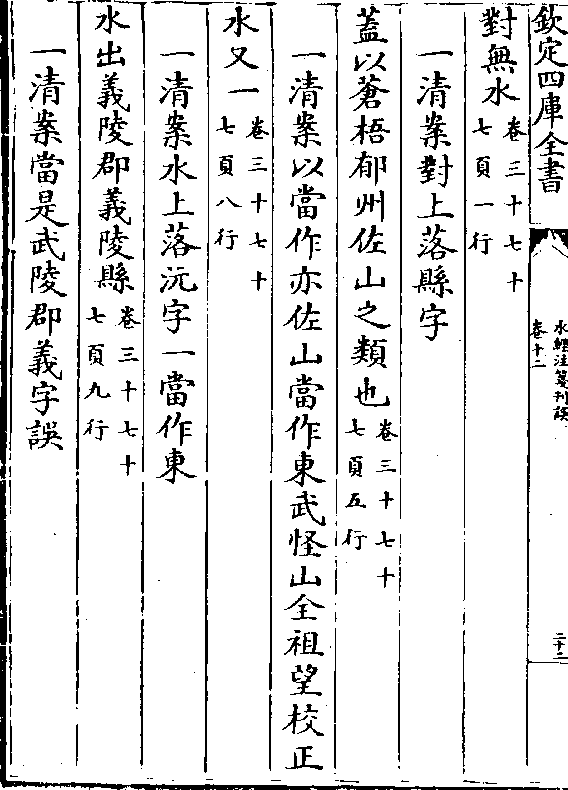 欽定四庫全書
水經注箋刊誤
卷十二
二十二
對無水卷三十七十七頁一行
一清案對上落縣字
蓋以蒼梧郁州佐山之類也卷三十七十七頁五行
一清案以當作亦佐山當作東武怪山全祖望校正
水又一卷三十七十七頁八行
一清案水上落沅字一當作東
水出義陵郡義陵縣卷三十七十七頁九行
一清案當是武陵郡義字誤